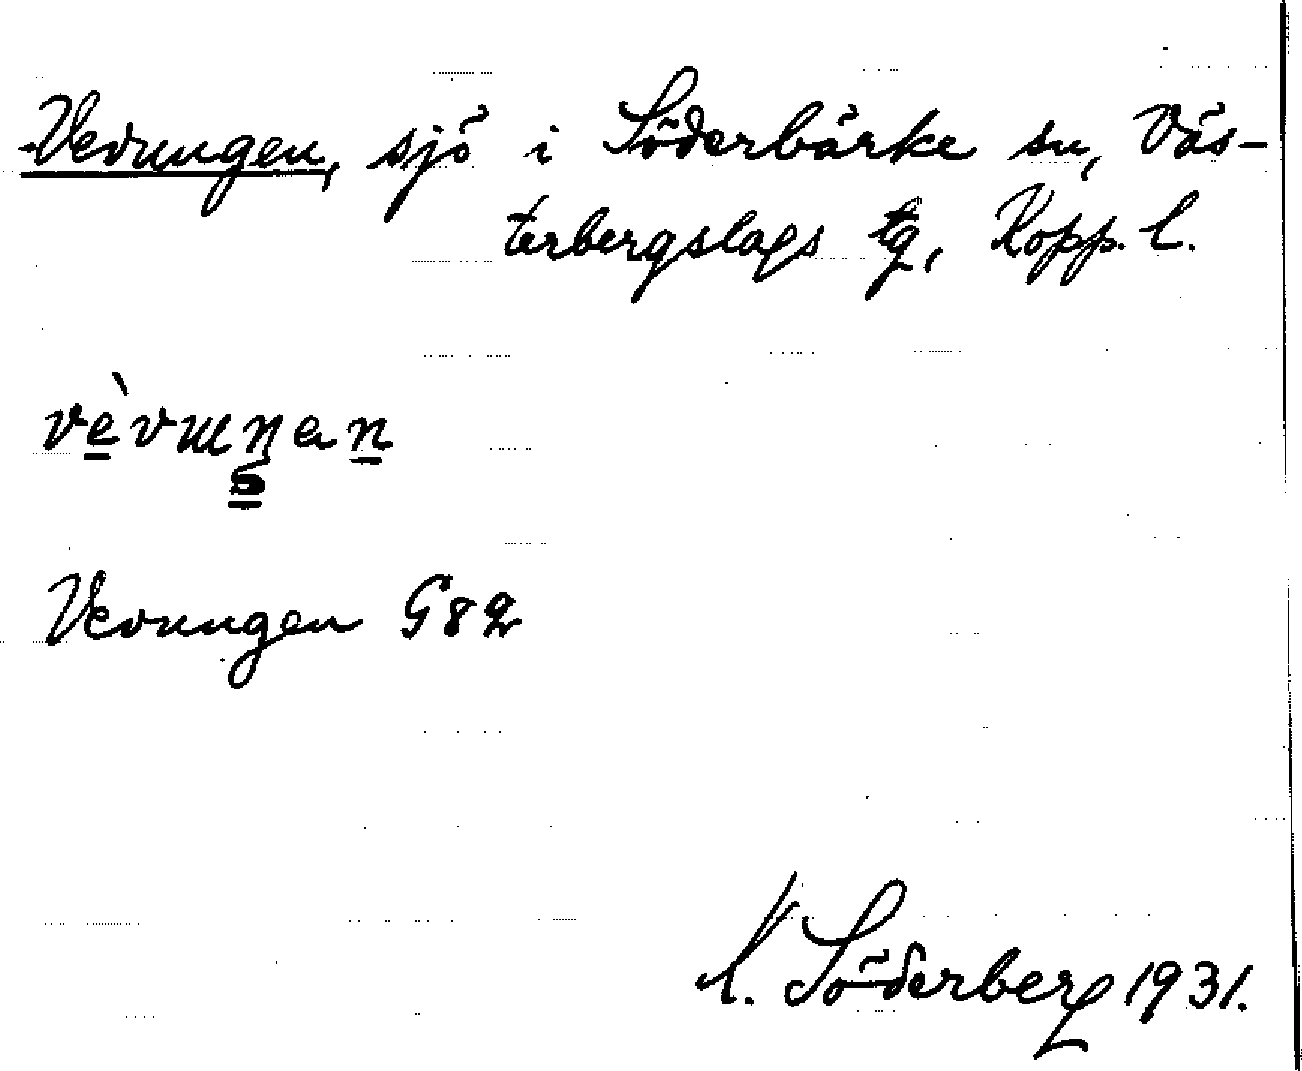 Vevungen, sjö i Söderbärke sn, Väs-
terbergslags tg, Kopp. l.
vèvuŋan
Vevungen G82
Söderberg 1931.